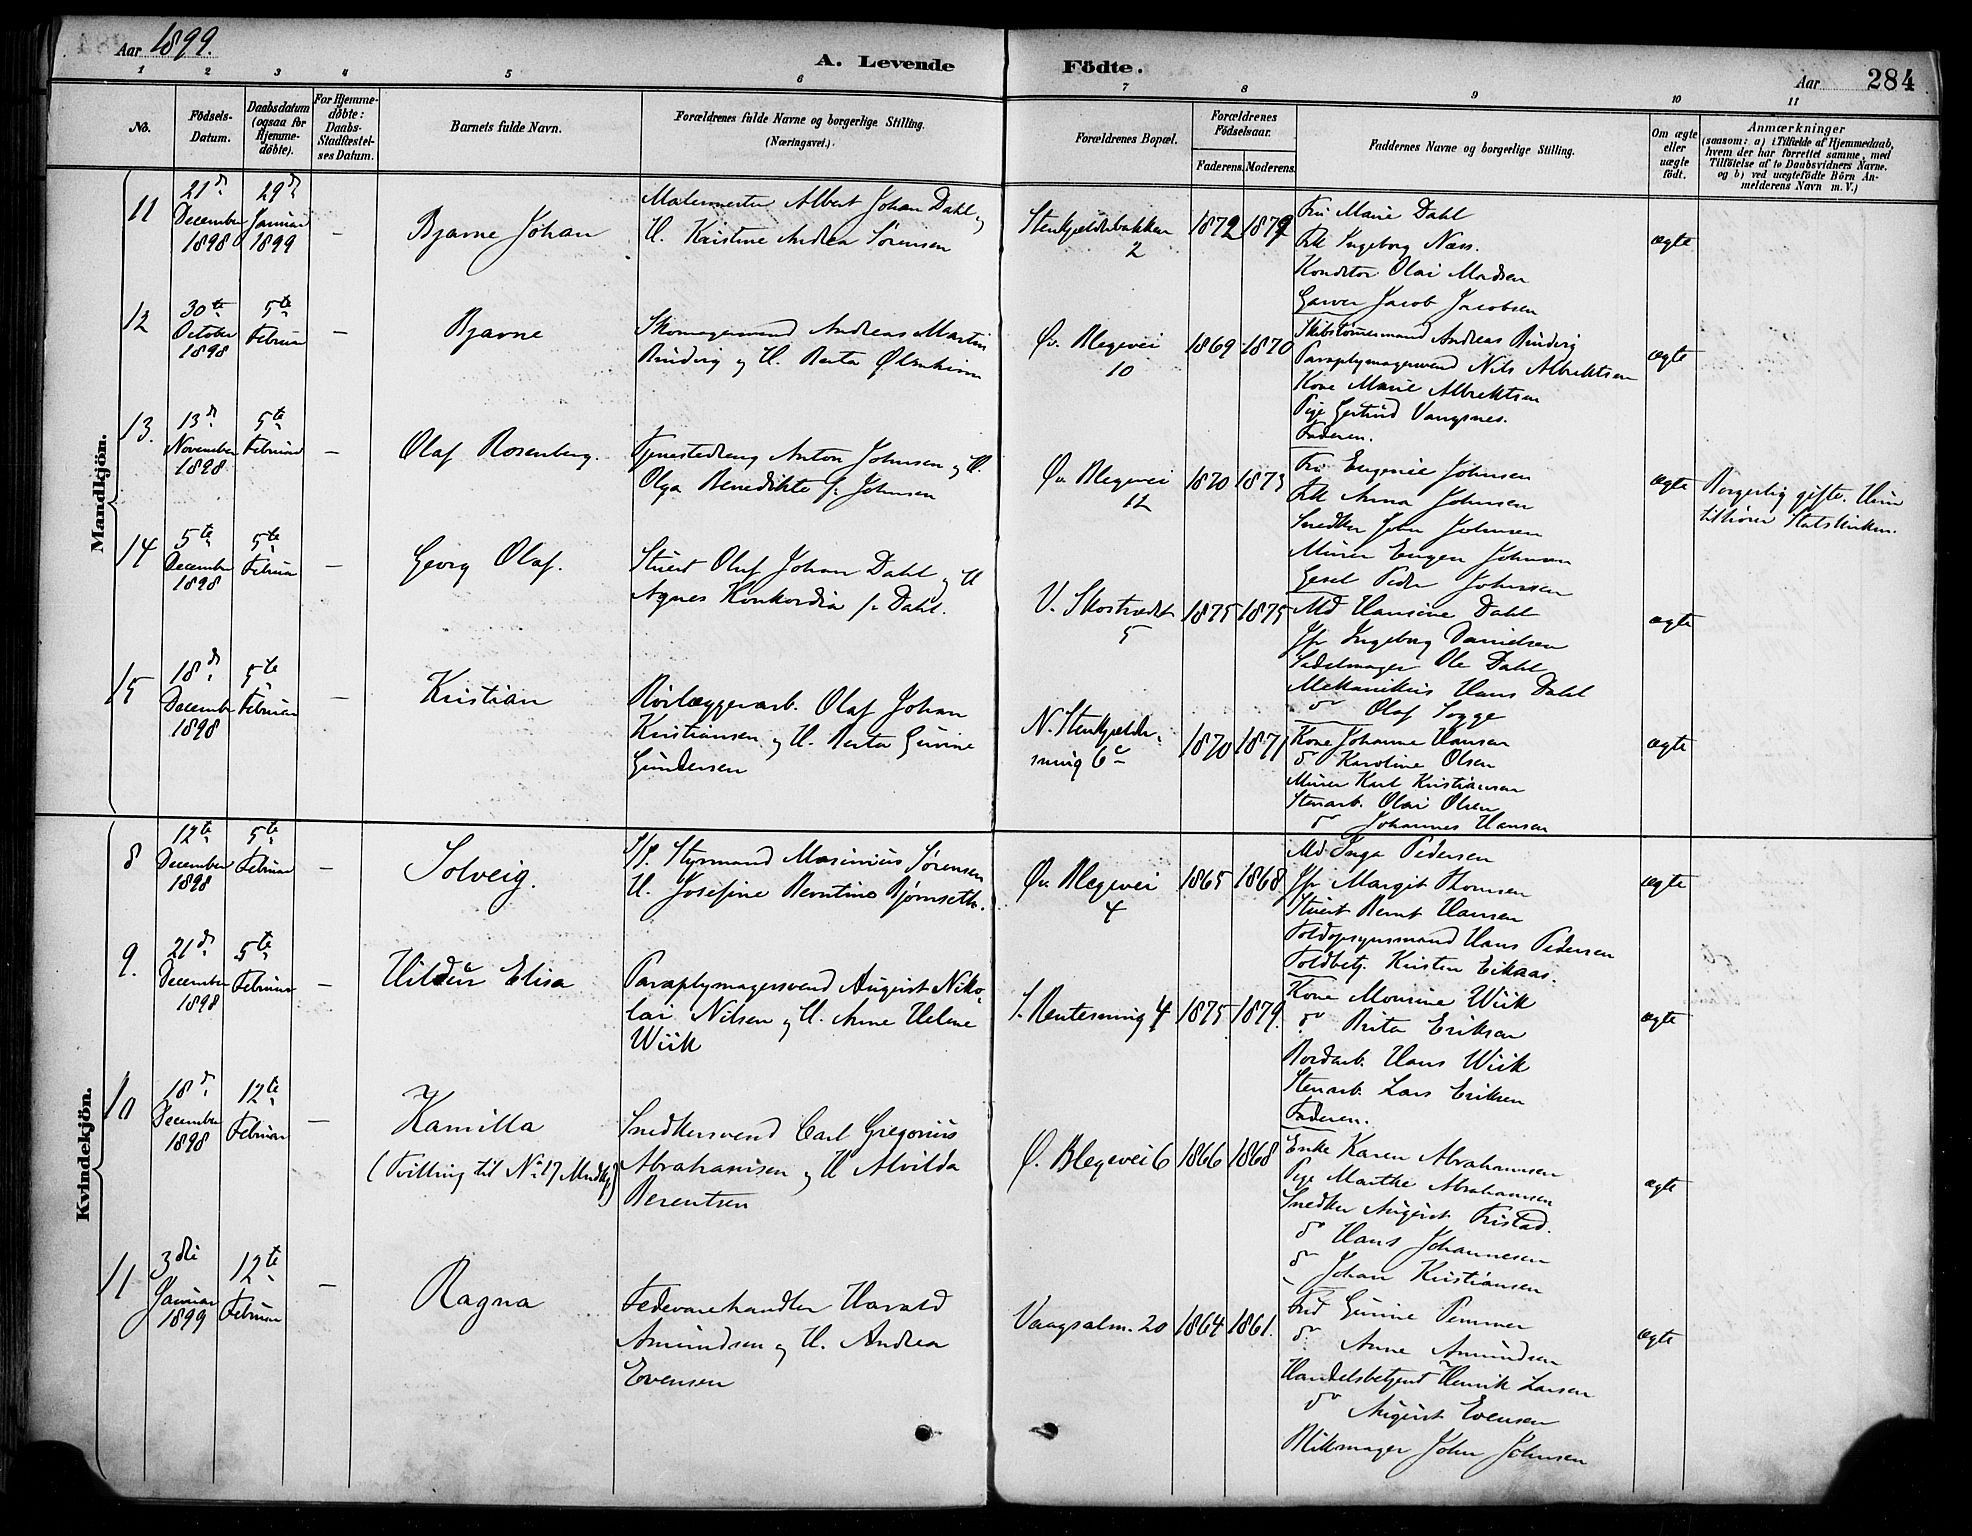 Aar 1899.
A. Levende Födte.
Aar 284
1 2 3 4 5 6 7 8 9 10 11
No.
Födsels-
Datum.
Daabsdatum
(ogsaa for
Hjemme-
döbte).
For Hjemme-
döbte:
Daabs-
Stadfæstel-
ses Datum.
Barnets fulde Navn.
Forældrenes fulde Navne og borgerlige Stilling.
(Næringsvei.)
Forældrenes Bopæl.
Forældrenes
Födselsaar.
Faderens. Moderens.
Faddernes Navne og borgerlige Stilling.
Om ægte
eller
uægte
født.
Anmærkninger
(saasom: a) i Tilfælde af Hjemmedaab,
hvem der har forrettet samme, med
Tilföielse af to Daabsvidners Navne.
og b) ved uægtefödte Börn An-
melderens Navn m. V.)
Mandkjön.
11
21d
December
1898
29d
Januar
1899
–
Bjarne Johan
Malermester Albert Johan Dahl og
H. Kristine Andrea Sørensen
Stenkjelderbakken
2
1872 1872
Fru Marie Dahl
Frk Ingeborg Næss.
Konditor Olai Madsen
Garver Jacob Jacobsen
ægte
12
30te
October
1898
5te
Februar
–
Bjarne
Skomagersvend Andreas Martin
Rindvig og H. Berta Øhrnheim
Øv. Blegevei
10
1869 1870
Skibstømmermand Andreas Rindvig
Paraplymagersvend Nils Albrektsen
Kone Marie Albrektsen
Pige Gertrud Vangsnes.
Faderen.
ægte
13.
13d
November
1898
5te
Februar
–
Olaf Rosenberg.
Tjenestedreng Anton Johnsen og H.
Olga Benedikte f. Johnsen
Øv. Blegevei
12
1870 1873
Fru Eugenie Johnsen
Frk Anna Johnsen
Snedker John Johnsen
Murer Eugen Johnsen
Gesel Peder Johnssen
ægte
Borgerlig gifte. Hun
tilhører Statskirken.
14
5te
December
1898
5te
Februar
–
Georg Olaf.
Stuert Olaf Johan Dahl og H
Agnes Konkordia f. Dahl.
V. Skostrædet
5
1875 1875
Md Hansine Dahl
Jfr Ingeborg Danielsen
Sadelmager Ole Dahl
Mekanikus Hans Dahl
do Olaf Sogge
ægte
15
18d
December
1898
5te
Februar
–
Kristian
Rørlæggerarb. Olaf Johan
Kristiansen og H. Berta Gurine
Gundersen
N. Stenkjelder-
smug 6c
1870 1871
Kone Johanne Hansen
do Karoline Olsen
Murer Karl Kristiansen
Stenarb. Olai Olsen
do Johannes Hansen
ægte
Kvindekjön.
8
12te
December
1898
5te
Februar
–
Solveig.
S/f. Styrmand Masinius Sørensen
H. Josefine Berntine Bjørnseth.
Øv. Blegevei
4
1865 1868
Md Inga Pedersen
Jfr Margit Thomsen
Stuert Bernt Hansen
Toldopsynsmand Hans Pedersen
Toldbetj. Kristen Eikaas.
ægte
9.
21d
December
1898
5te
Februar
–
Hildur Elisa
Paraplymagersvend August Niko-
lai Nilsen og H. Anne Helene
Wiik
S. Rentesmug 4
1875 1879.
Kone Monsine Wiik
do Brita Eriksen
Bordarb. Hans Wiik
Stenarb. Lars Eriksen
Faderen.
ægte
10
18d
December
1898
12te
Februar
–
Kamilla
(Tvilling til No 17 Mndkj)
Snedkersvend Carl Gregorius
Abrahamsen og H Alvilda
Berentsen
Ø. Blegevei 6
1866 1868
Enke Karen Abrahamsen
Pige Marthe Abrahamsen
Snedker August Fristad.
do Hans Johannesen
do Johan Kristiansen
ægte
11
3die
Januar
1899
12te
Februar
–
Ragna
Fedevarehandler Harald
Amundsen og H. Andrea
Evensen
Vaagsalm. 20
1864 1861.
Fru Gurine Pemmer
do Anne Amundsen
Handelsbetjent Henrik Larsen
do August Evensen
Blikmager John Johnsen
ægte